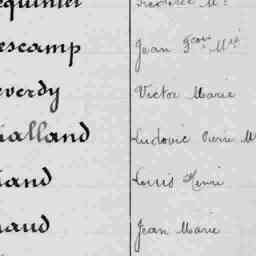 equinter
escamp Jean Fcois Mie
everdy Victor Marie
alland Ludovic Pierre M
and Louis Henri
aud Jean Marie